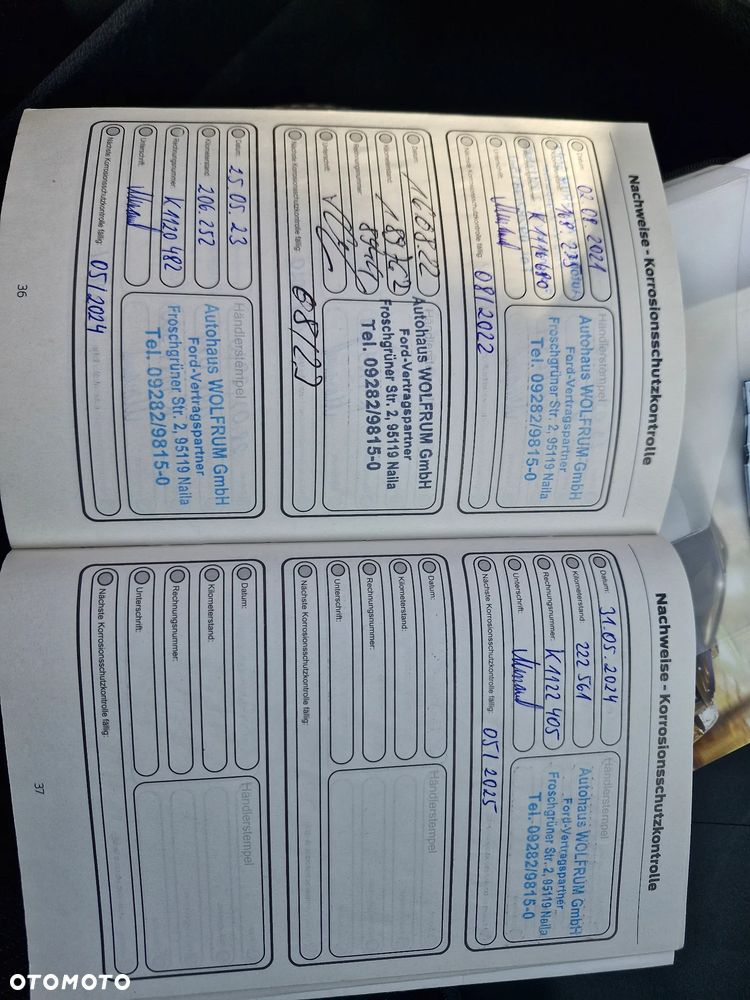 Nachweise - Korrosionsschutzkontrolle
Datum: 02.09.2021
K1116680
Unterschrift:
Nächste Korrosionsschutzkontrolle fällig: 08/2022
Händlerstempel
Autohaus WOLFRUM GmbH
Ford-Vertragspartner
Froschgrüner Str. 2, 95119 Naila
Tel. 09282/9815-0
Datum: 16.08.22
Kilometerstand: 189762
Rechnungsnummer:
Unterschrift:
Nächste Korrosionsschutzkontrolle fällig: 08/23
Autohaus WOLFRUM GmbH
Ford-Vertragspartner
Froschgrüner Str. 2, 95119 Naila
Tel. 09282/9815-0
Datum: 25.05.23
Kilometerstand: 206.252
Rechnungsnummer: K1120482
Unterschrift:
Nächste Korrosionsschutzkontrolle fällig: 05/2024
Händlerstempel
Autohaus WOLFRUM GmbH
Ford-Vertragspartner
Froschgrüner Str. 2, 95119 Naila
Tel. 09282/9815-0
36
Nachweise - Korrosionsschutzkontrolle
Datum: 31.05.2024
Kilometerstand: 222 561
Rechnungsnummer: K1122405
Unterschrift:
Nächste Korrosionsschutzkontrolle fällig: 05/2025
Händlerstempel
Autohaus WOLFRUM GmbH
Ford-Vertragspartner
Froschgrüner Str. 2, 95119 Naila
Tel. 09282/9815-0
Datum:
Kilometerstand:
Rechnungsnummer:
Unterschrift:
Nächste Korrosionsschutzkontrolle fällig:
Händlerstempel
Datum:
Kilometerstand:
Rechnungsnummer:
Unterschrift:
Nächste Korrosionsschutzkontrolle fällig:
Händlerstempel
37
OTOMOTO